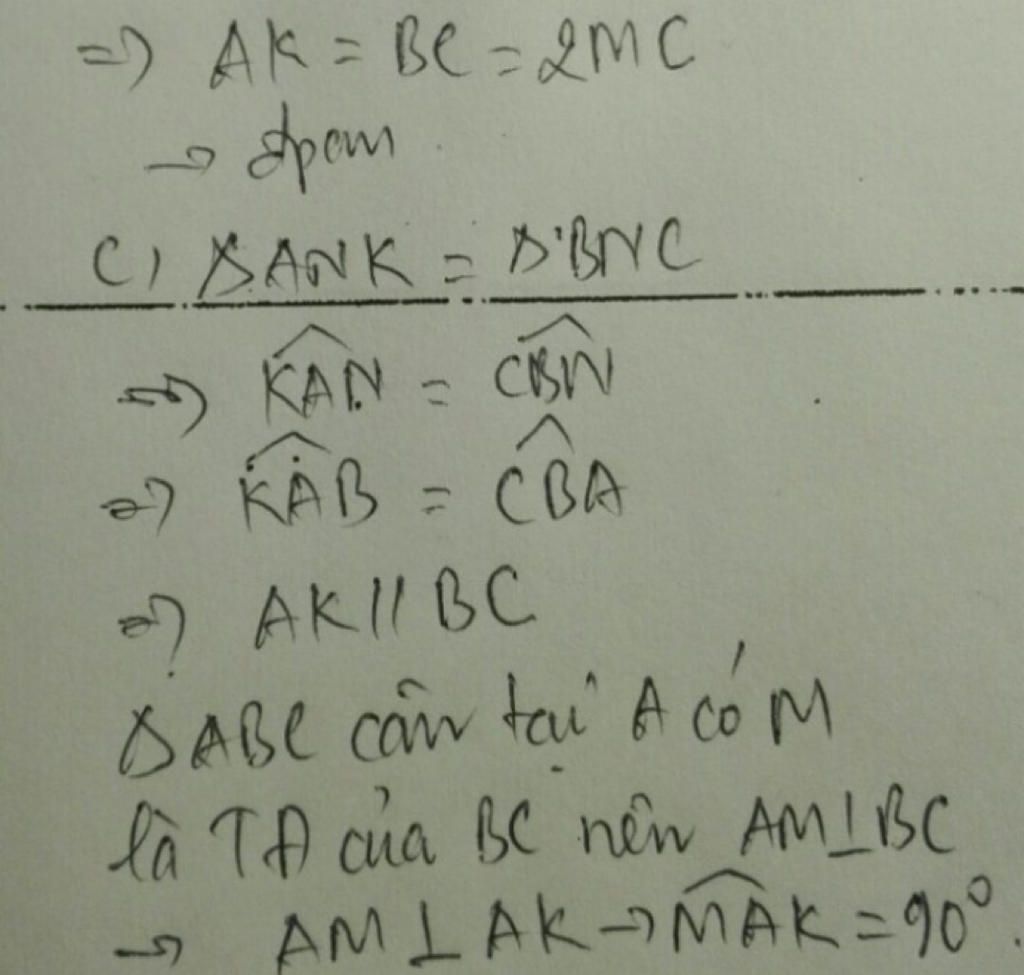 => AK = BC = 2MC
→ đpcm
c) ΔANK = ΔBNC
=> \widehat{KAN} = \widehat{CBN}
=> \widehat{KAB} = \widehat{CBA}
=> AK // BC
ΔABC cân tại A có M
là TĐ của BC nên AM ⊥ BC
→ AM ⊥ AK → \widehat{MAK} = 90°.